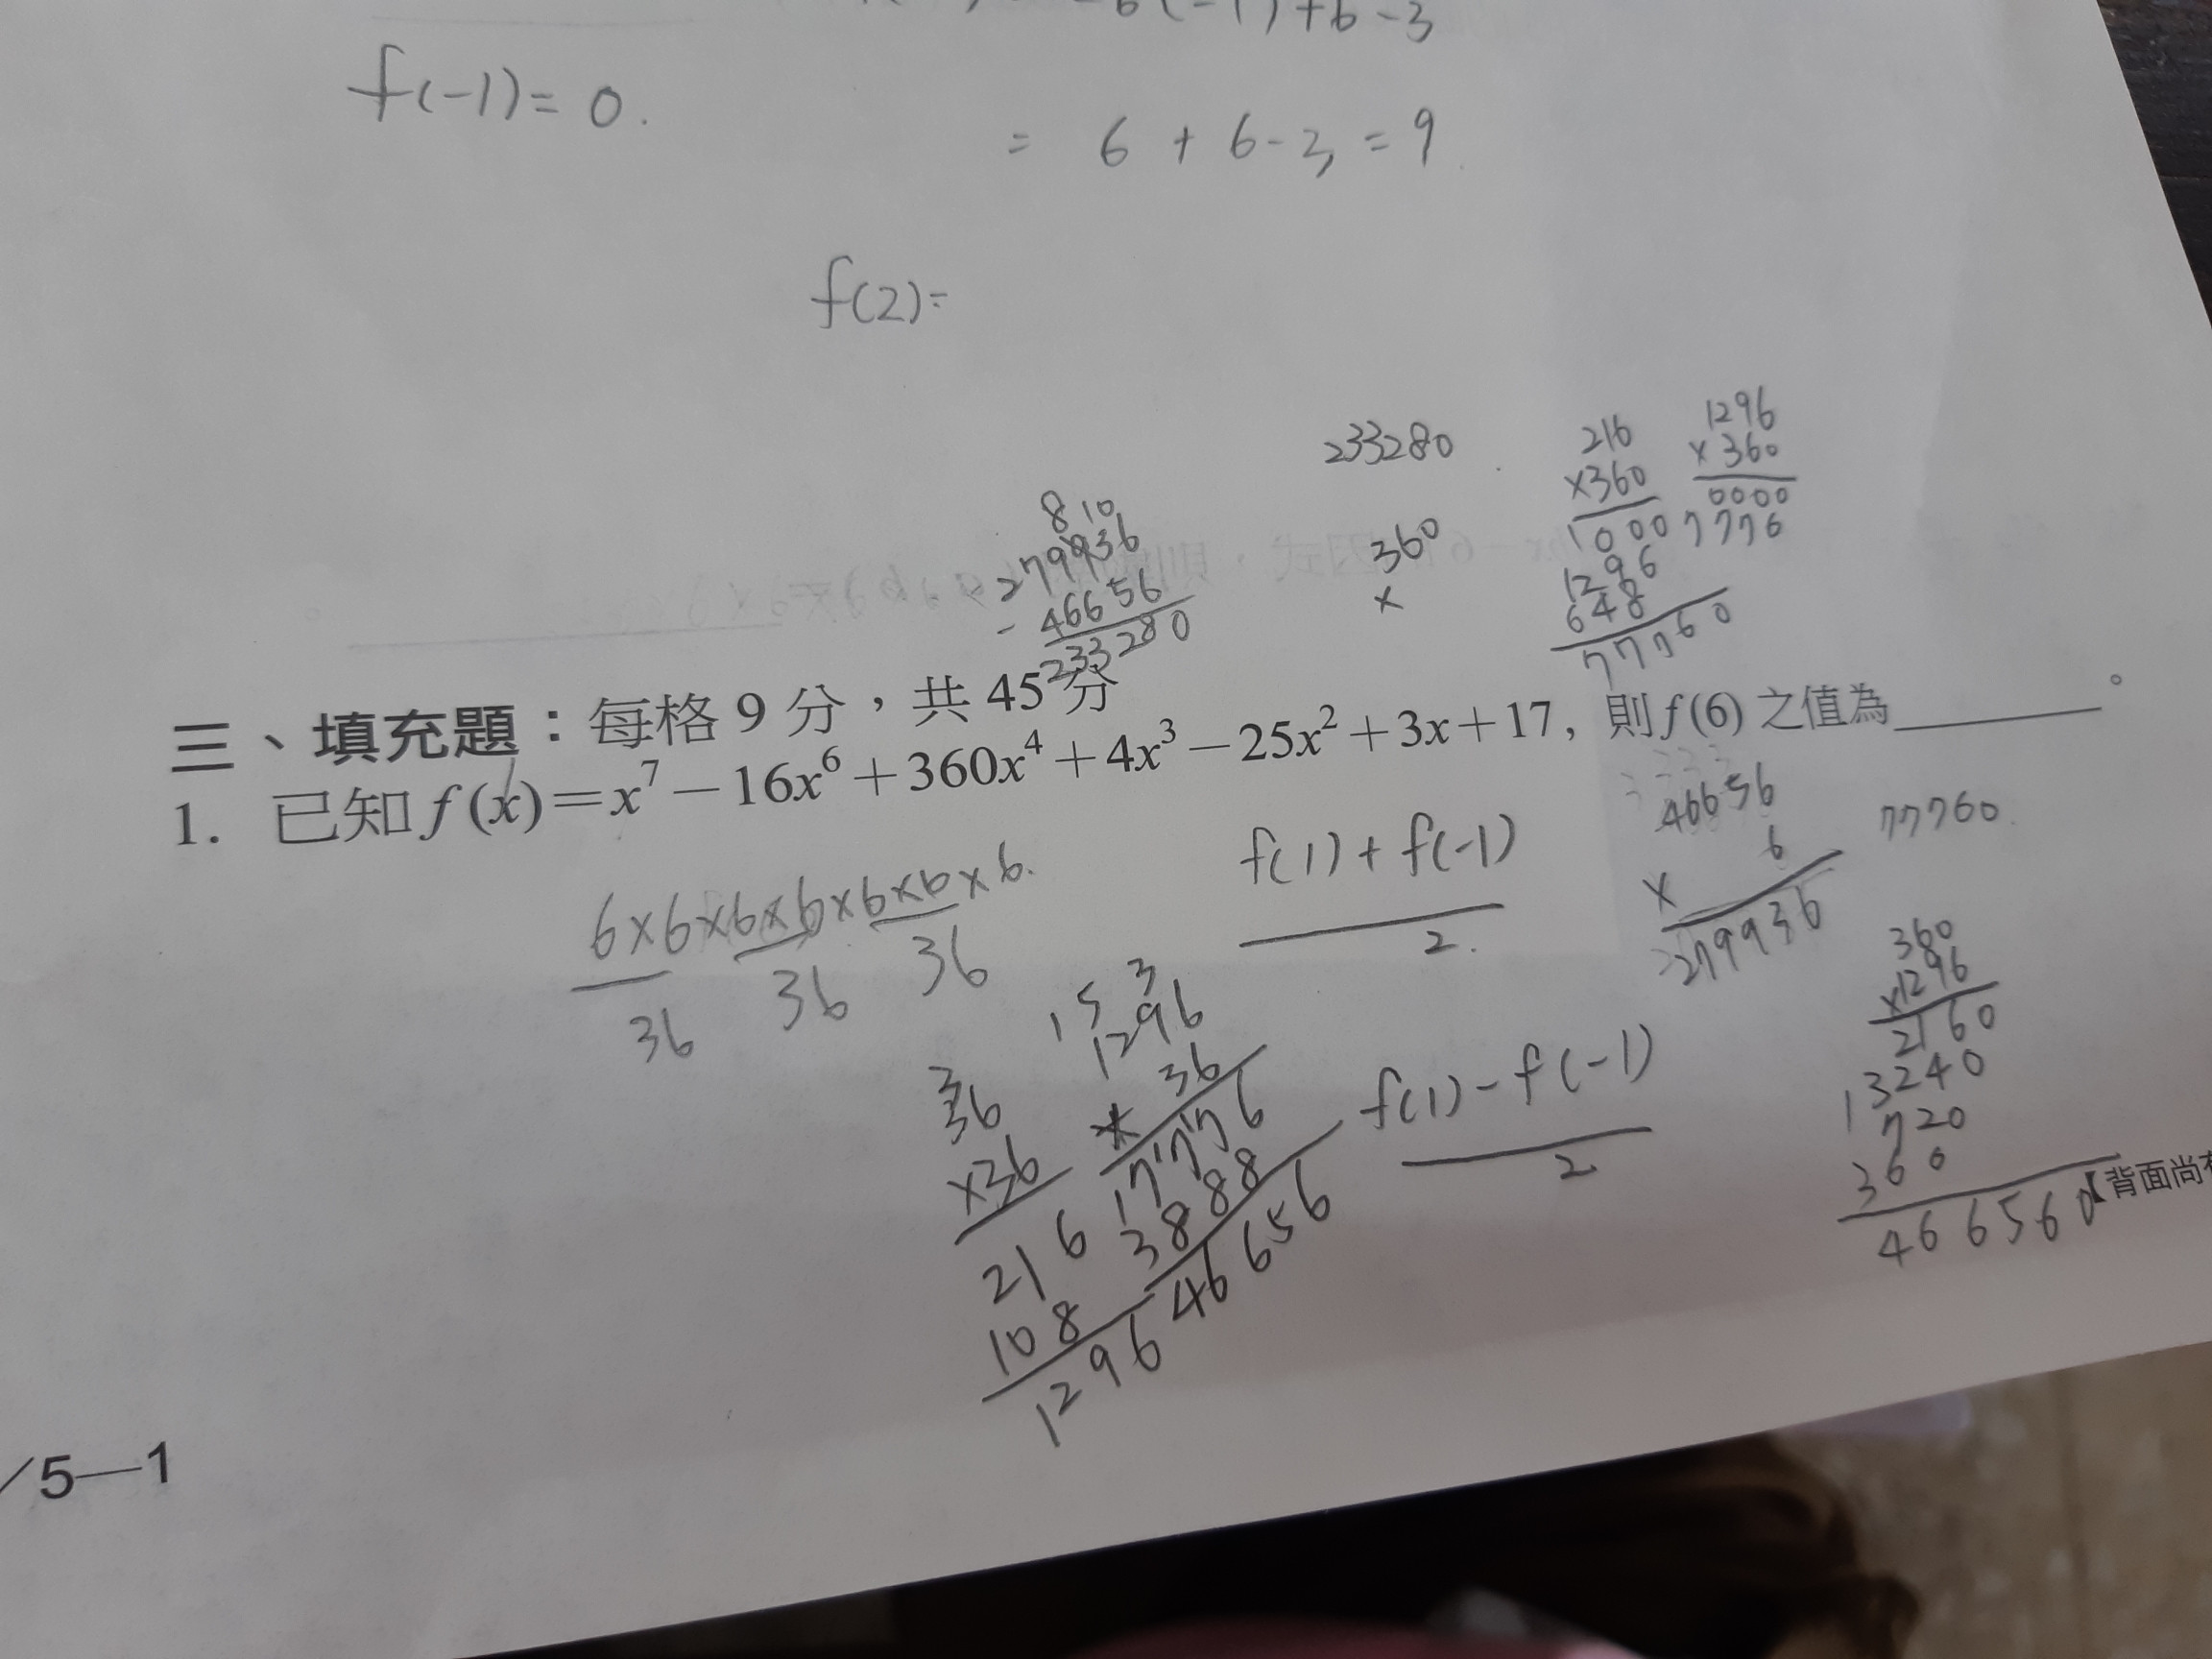 6(-1)+6-3
f(-1)=0.
= 6+6-3=9
f(2)=
233280
216
×360
1000
1296
648
77760
1296
×360
0000
7776
8 10
279936
-46656
233280
360
×
三、填充題：每格9分，共45分
1. 已知f(x)=x⁷-16x⁶+360x⁴+4x³-25x²+3x+17, 則f(6)之值為＿＿＿＿。
6×6×6×6×6×6×6.
36 36 36
f(1)+f(-1)
2.
46656
× 6
279936
77760
3
36
×36
216
108
1296
1 5 3
1296
× 36
17776
3888
46656
f(1)-f(-1)
2
360
×1296
2160
13240
720
360
466560
【背面尚
/5—1